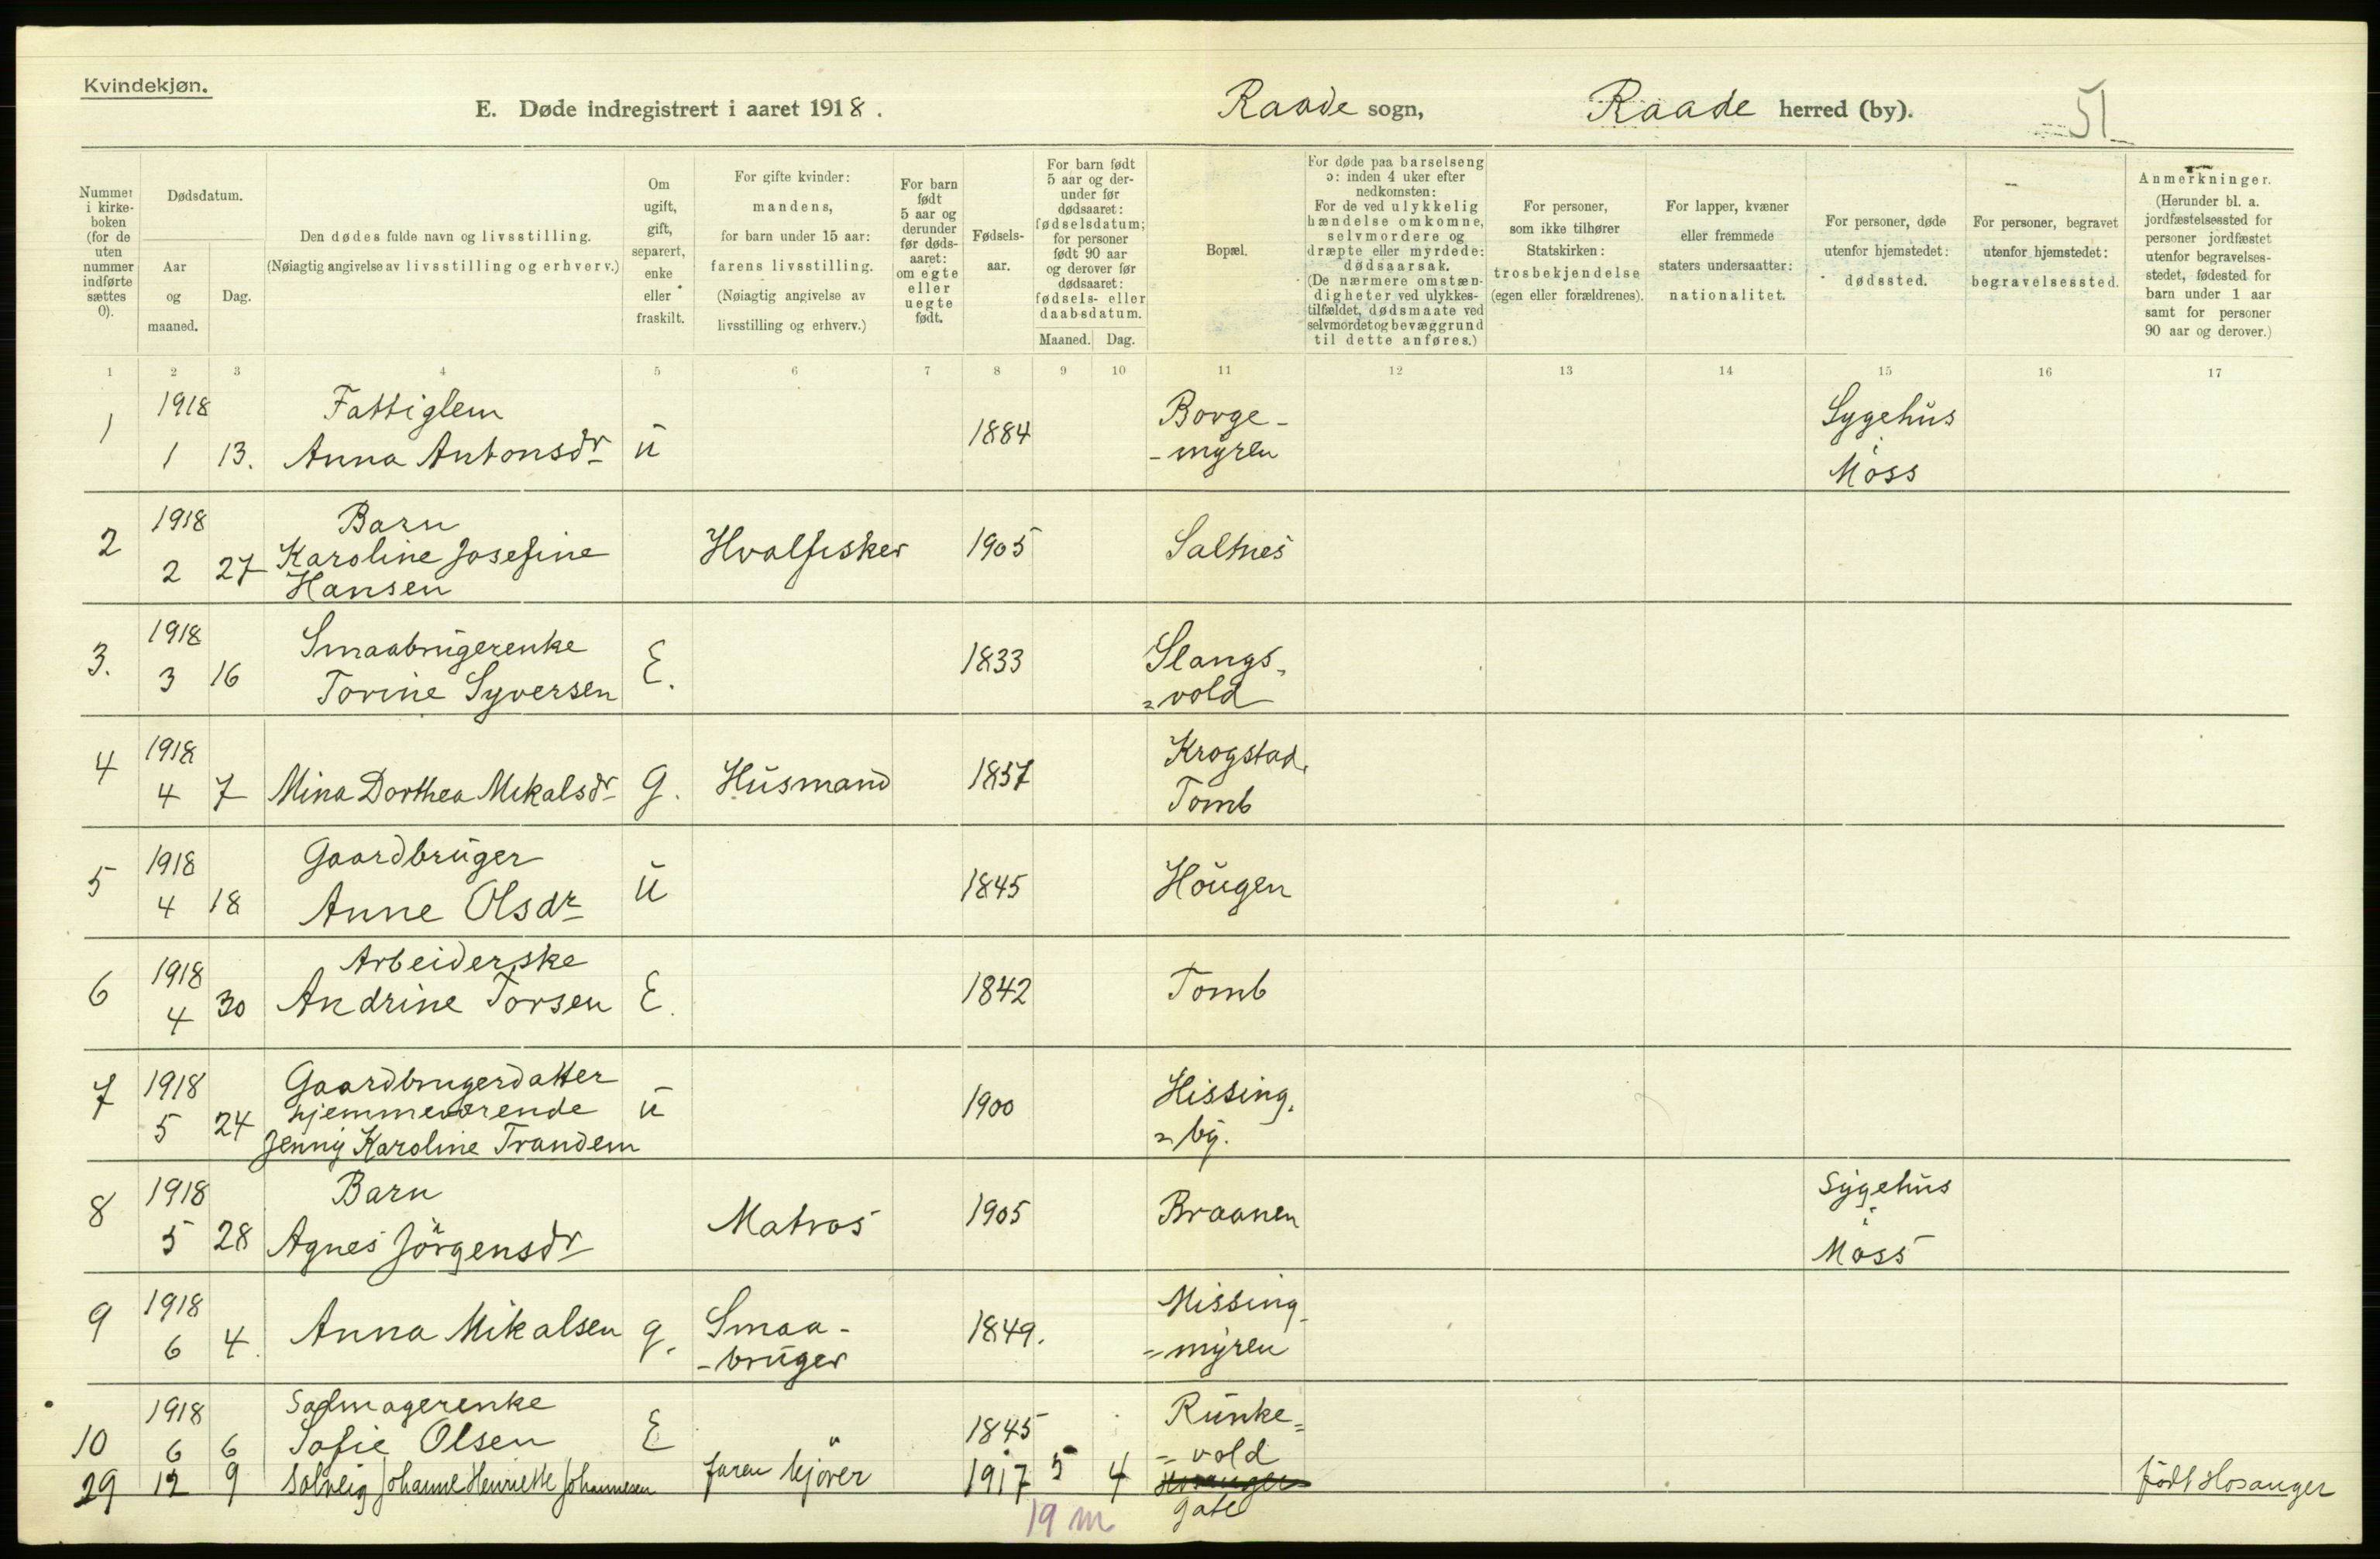 Kvindekjøn.
E. Døde indregistrert i aaret 1918. Raade sogn, Raade herred (by). 51
Nummer i kirkeboken (for de uten nummer indførte sættes 0).
Dødsdatum.
Aar og maaned.
Dag.
Den dødes fulde navn og livsstilling.
(Nøiagtig angivelse av livsstilling og erhverv.)
Om ugift, gift, separert, enke eller fraskilt.
For gifte kvinder:
mandens,
for barn under 15 aar:
farens livsstilling.
(Nøiagtig angivelse av
livsstilling og erhverv.)
For barn født 5 aar og derunder før dødsaaret: om egte eller uegte født.
Fødselsaar.
For barn født 5 aar og derunder før dødsaaret: fødselsdatum; for personer født 90 aar og derover før dødsaaret: fødsels- eller daabsdatum.
Maaned. Dag.
Bopæl.
For døde paa barselseng
ɔ: inden 4 uker efter
nedkomsten:
For de ved ulykkelig
hændelse omkomne,
selvmordere og
dræpte eller myrdede:
dødsaarsak.
(De nærmere omstæn-
digheter ved ulykkes-
tilfældet, dødsmaate ved
selvmordet og bevæggrund
til dette anføres.)
For personer,
som ikke tilhører
Statskirken:
trosbekjendelse
(egen eller forældrenes).
For lapper, kvæner
eller fremmede
staters undersaatter:
nationalitet.
For personer, døde
utenfor hjemstedet:
dødssted.
For personer, begravet
utenfor hjemstedet:
begravelsessted.
Anmerkninger.
(Herunder bl. a.
jordfæstelsessted for
personer jordfæstet
utenfor begravelses-
stedet, fødested for
barn under 1 aar
samt for personer
90 aar og derover.)
1 2 3 4 5 6 7 8 9 10 11 12 13 14 15 16 17
1918 Fattiglem Borge- Sygehus
1 1 13. Anna Antonsdr u 1884 -myren i Moss
1918 Barn
2 2 27 Karoline Josefine Hvalfisker 1905 Saltnes
Hansen
1918 Smaabrugerenke Slangs-
3. 3 16 Torine Syversen E. 1833 =vold
1918 Krogstad,
4 4 7 Mina Dorthea Mikalsdr g. Husmand 1857 Tomb
1918 Gaardbruger
5 4 18 Anne Olsdr u 1845 Hougen
1918 Arbeiderske
6 4 30 Andrine Torsen E. 1842 Tomb
1918 Gaardbrugerdatter Hissing-
7 5 24 hjemmeværende u 1900 =by.
Jenny Karoline Trandem
1918 Barn Sygehus
8 5 28 Agnes Jörgensdr Matros 1905 Braanen i
Moss
1918 Missing-
9 6 4. Anna Mikalsen g. Smaa- 1849. =myren
-bruger
1918 Sadmagerenke Runke=
10 6 6 Sofie Olsen E 1845 =vold
29 12 9 Solveig Johanne Henriette Johannesen faren kjører 1917 5 4 gate født Hosanger
19 m